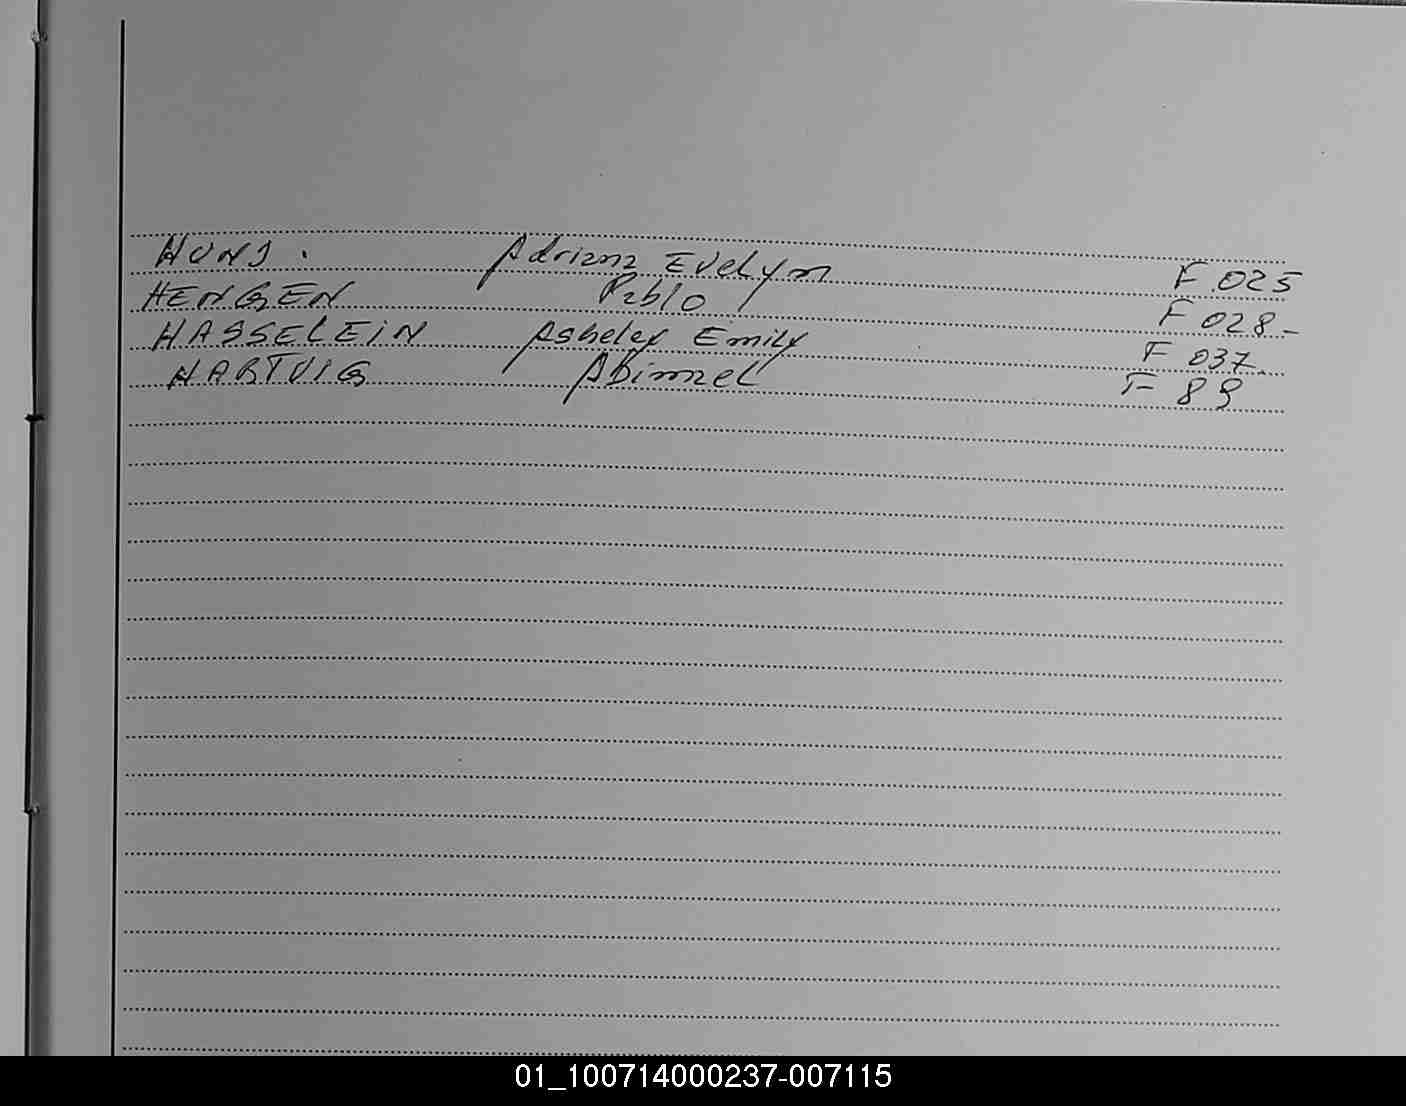 HUNJ. Adriana Evelyn F 025
HENGEN Pablo F 028-
HASSELEIN Asheley Emily F 037.
HARTVIG Abimael F 89
01_100714000237-007115